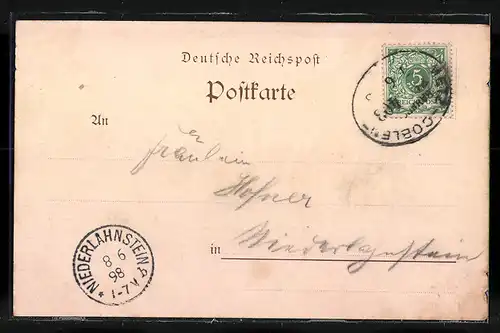 Deutsche Reichspost
Postkarte
5
COBLE
An
Fräulein
Hofner
in Niederlahnstein
NIEDERLAHNSTEIN
8 6
98
1-7 N